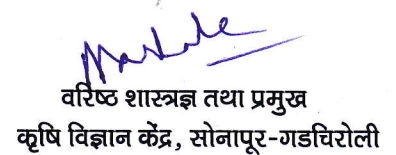 वरिष्ठ शास्त्रज्ञ तथा प्रमुख
कृषि विज्ञान केंद्र, सोनापूर-गडचिरोली